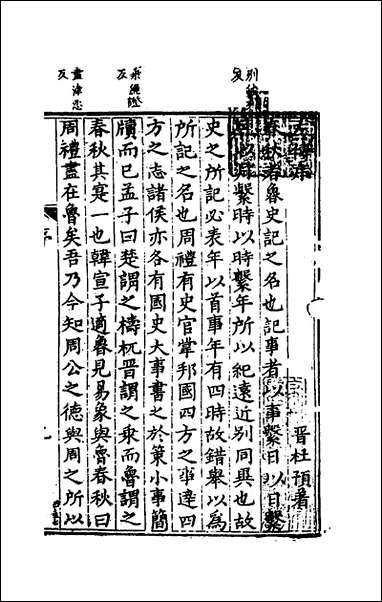 左傳序
晉杜預著
春秋者魯史記之名也記事者以事繫日以日繫
月以月繫時以時繫年所以紀遠近別同異也故
史之所記必表年以首事年有四時故錯舉以為
所記之名也周禮有史官掌邦國四方之事達四
方之志諸侯亦各有國史大事書之於策小事簡
牘而已孟子曰楚謂之檮杌晉謂之乘而魯謂之
春秋其實一也韓宣子適魯見易象與魯春秋曰
周禮盡在魯矣吾乃今知周公之德與周之所以
序